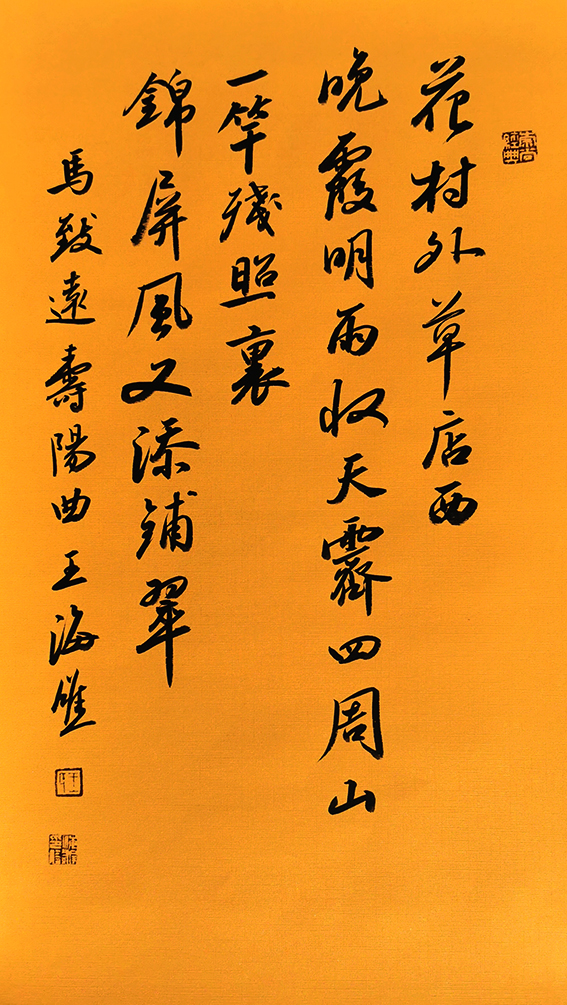 花村外草店西
晚霞明雨收天霽四周山
一竿殘照裏
錦屏風又添鋪翠
馬致遠壽陽曲王海